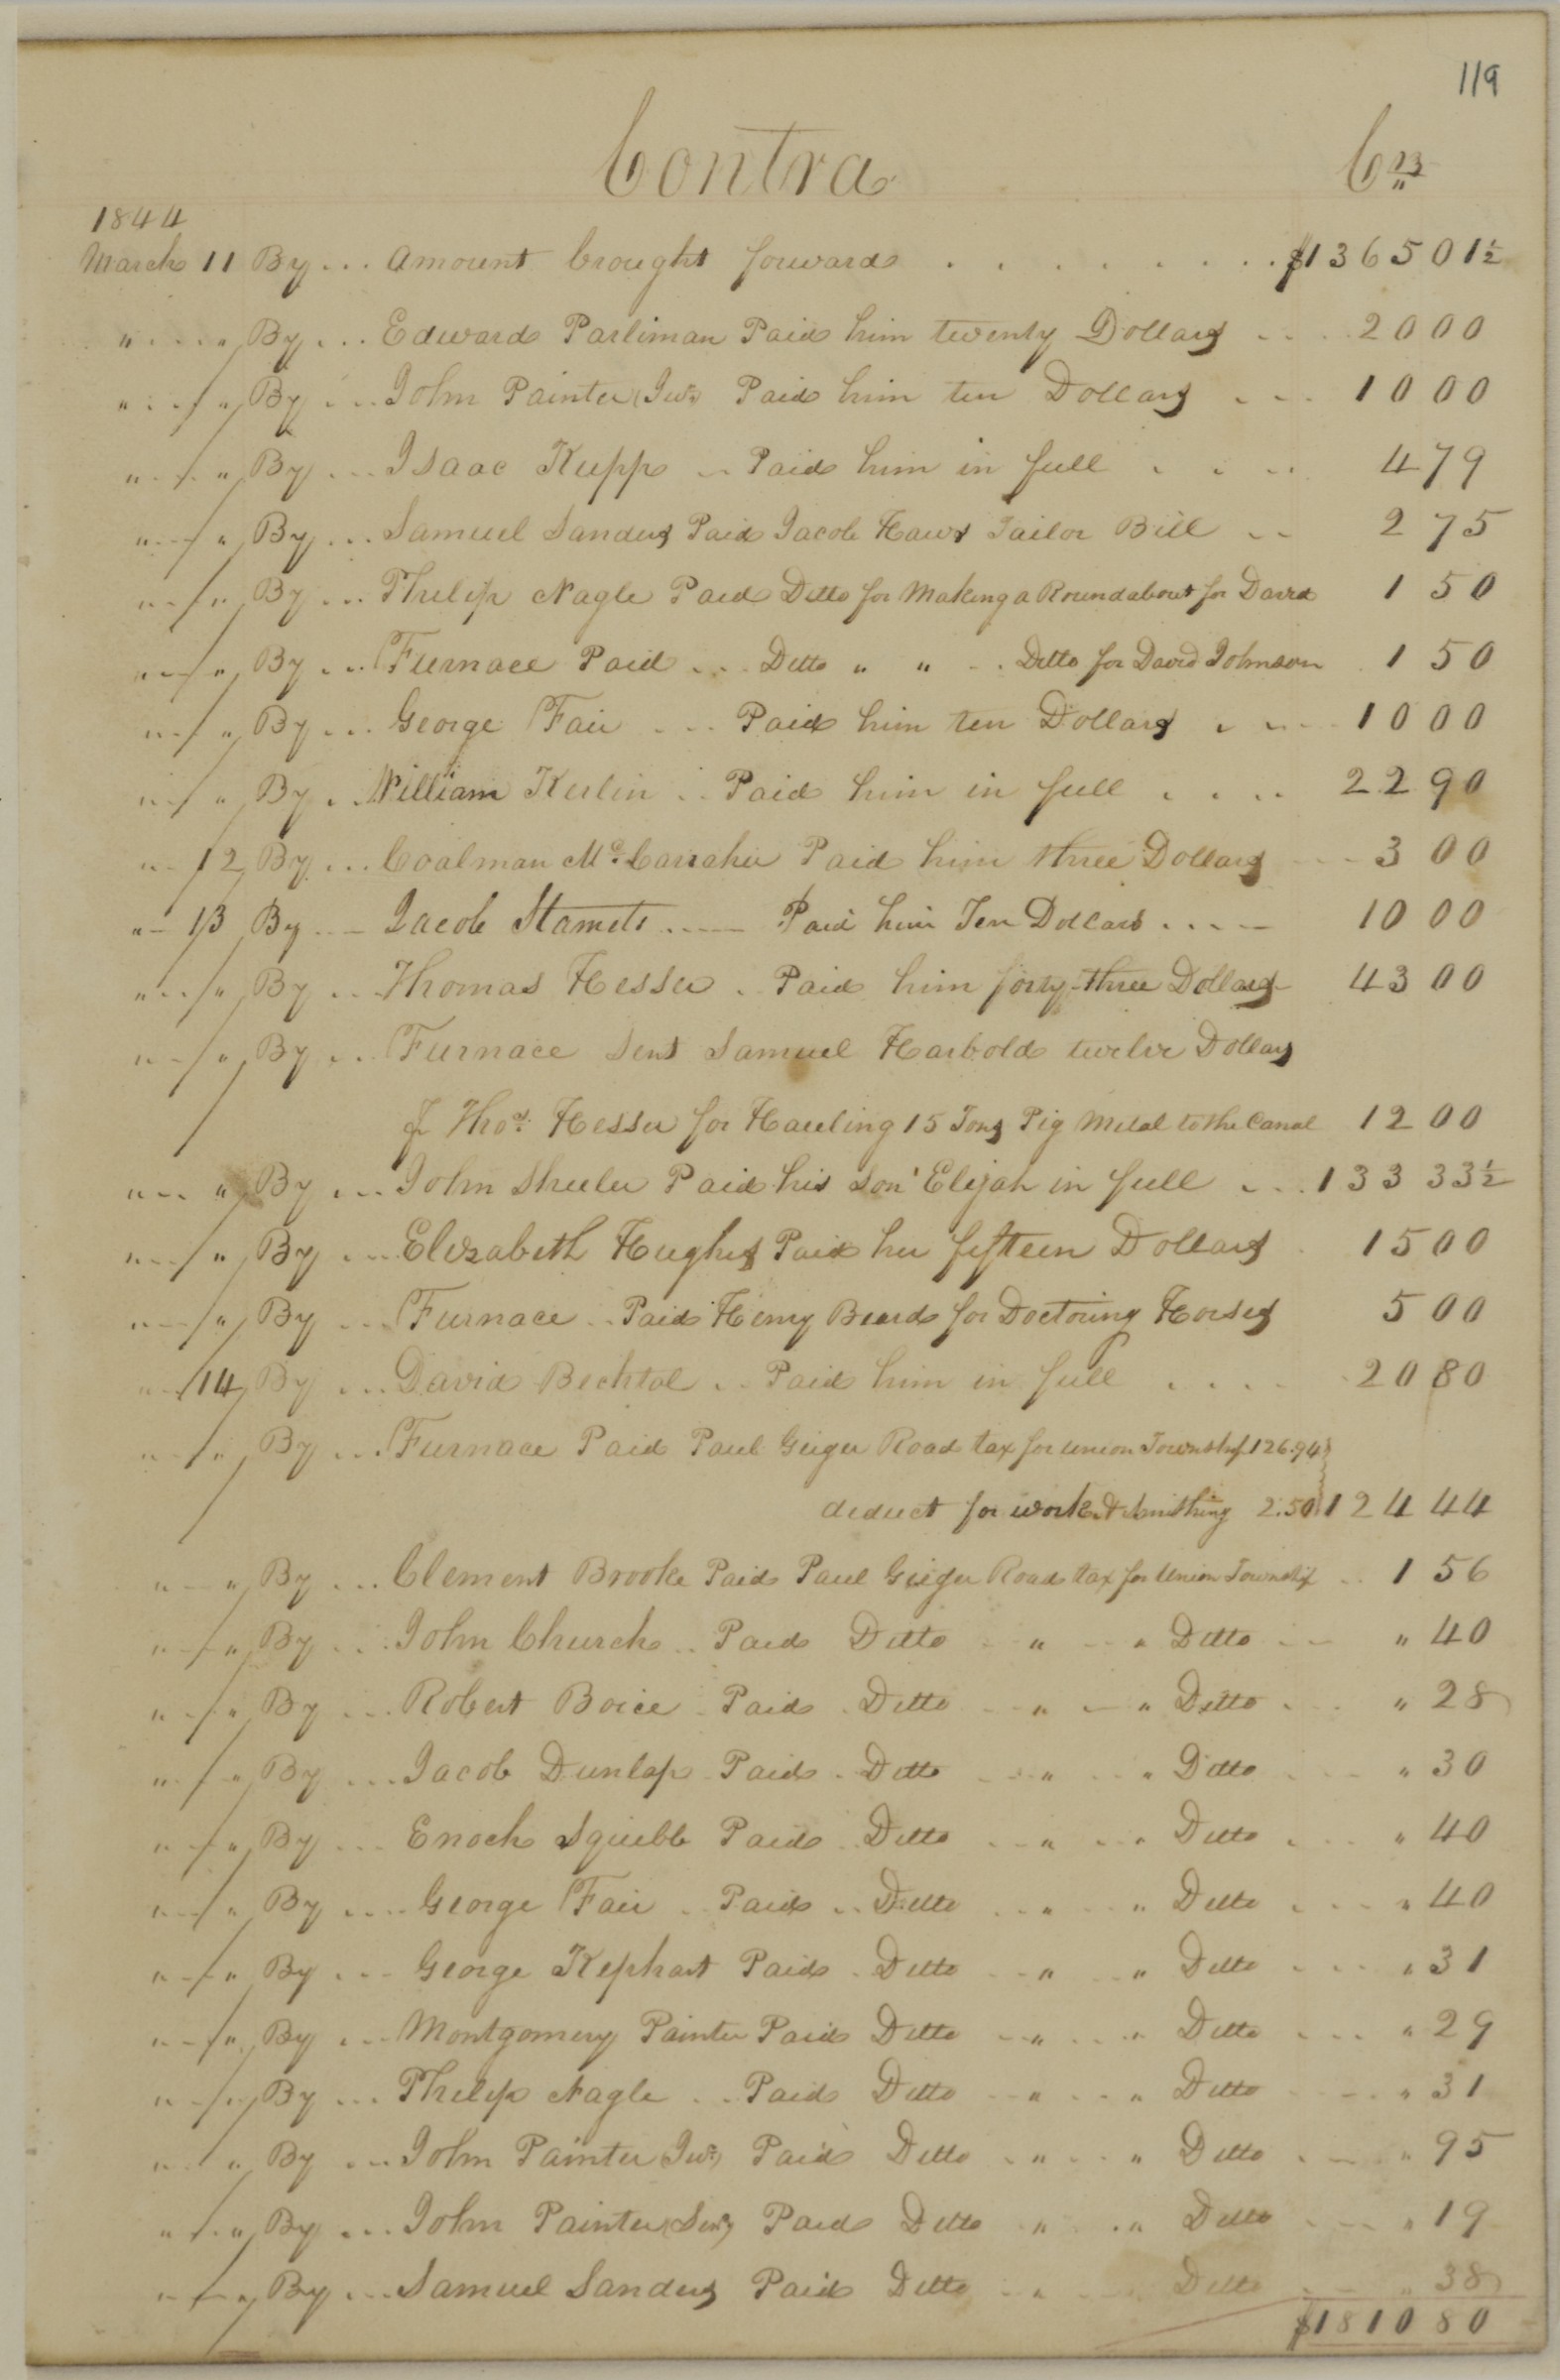 119
Contra Crs
1844
March 11 By ... Amount brought forward . . . . . . . . $1365 01½
" . . . " By ... Edward Parliman Paid him twenty Dollars . . . 20 00
" . . . " By ... John Painter Junr Paid him ten Dollars . . . 10 00
" . . . " By ... Isaac Kupp .. Paid him in full . . . 4 79
" . . . " By ... Samuel Sanders Paid Jacob Haws Tailor Bill .. 2 75
" . . . " By ... Philip Nagle Paid Ditto for Making a Roundabout for David 1 50
" . . . " By ... Furnace Paid ... Ditto " " .. Ditto for David Johnson . 1 50
" . . . " By ... George Fair ... Paid him ten Dollars . . . 10 00
" . . . " By ... William Kerlin .. Paid him in full . . . . 22 90
" .. 12 By ... Coalman McCarraher Paid him three Dollars ... 3 00
" .. 13 By ... Jacob Stamets ..... Paid him Ten Dollars ..... 10 00
" . . . " By ... Thomas Hesser . Paid him forty-three Dollars 43 00
" . . . " By ... Furnace Sent Samuel Harbold twelve Dollars
℘ Thos. Hesser for Hauling 15 Tons Pig Metal to the Canal 12 00
" . . . " By ... John Sheeler Paid his Son Elijah in full . . . 133 33½
" . . . " By ... Elizabeth Hughes Paid her fifteen Dollars . 15 00
" . . . " By ... Furnace .. Paid Henry Beard for Doctoring Horses 5 00
" .. 14 By ... David Bechtol .. Paid him in full . . . . 20 80
" . . . " By ... Furnace Paid Paul Geiger Road tax for Union Township 126.94
deduct for work & Smithing 2.50 124 44
" . . . " By ... Clement Brooke Paid Paul Geiger Road tax for Union Township .. 1 56
" . . . " By ... John Church .. Paid Ditto .. " .. " Ditto ... " 40
" . . . " By ... Robert Boice . Paid . Ditto .. " .. " Ditto ... " 28
" . . . " By ... Jacob Dunlap Paid . Ditto .. " .. " Ditto ... " 30
" . . . " By ... Enoch Squibb Paid . Ditto .. " .. " Ditto ... " 40
" . . . " By ... George Fair .. Paid .. Ditto .. " .. " Ditto ... " 40
" . . . " By ... George Kephart Paid . Ditto .. " .. " Ditto ... " 31
" . . . " By ... Montgomery Painter Paid Ditto .. " .. " Ditto ... " 29
" . . . " By ... Philip Nagle .. Paid Ditto .. " .. " Ditto ... " 31
" . . . " By ... John Painter Junr Paid Ditto .. " .. " Ditto ... " 95
" . . . " By ... John Painter Senr Paid Ditto " .. " Ditto ... " 19
" . . . " By ... Samuel Sanders Paid Ditto .. " .. Ditto ... " 38
$1810 80